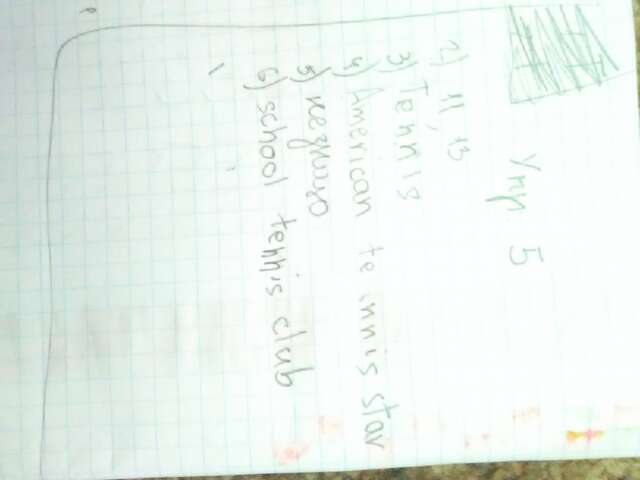 Упр 5
2) 11, 13
3) Tennis
4) American te innis star
5) незнаю
6) school tennis club